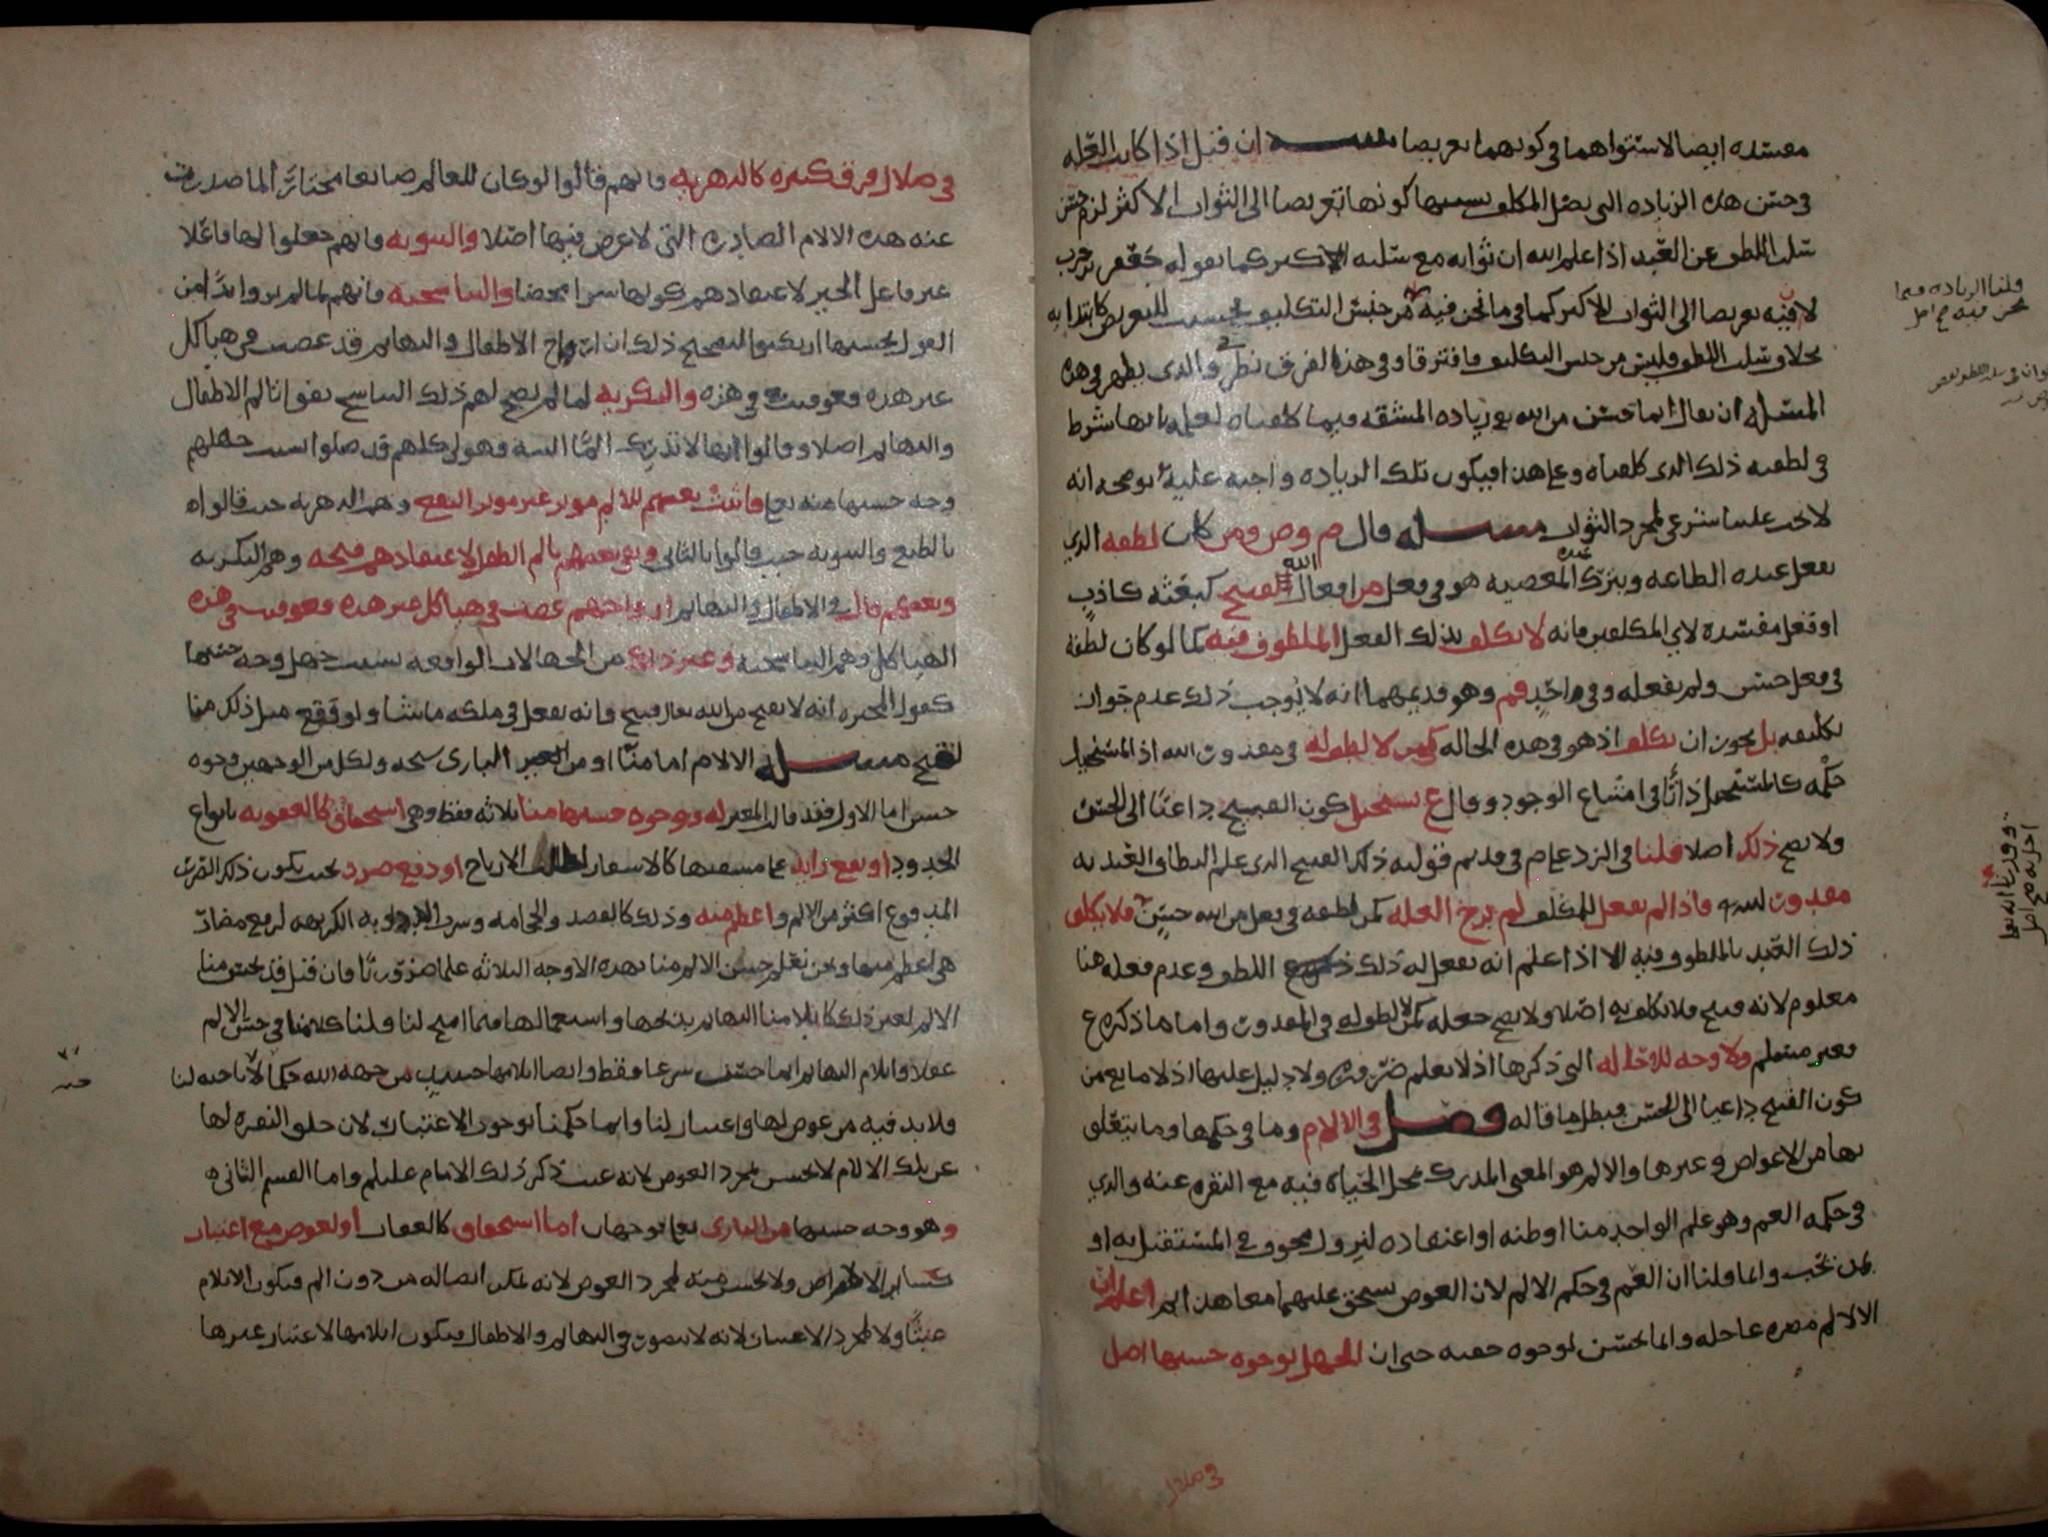 مفسده ايضا لاستوائهما في كونهما تعريضا تنبيه ان قيل اذا كانت العله
في حسن هذه الزياده التي يضل المكلف بسببها كونها تعريضا الى الثواب الاكثر لزم حسن
سلب اللطف عن العبد اذا علم الله ان ثوابه مع سلبه الاكبر كما يقوله جعفر بن حرب
لا فيه تعريضا الى الثواب الاكثر كما في ما نحن فيه من جنس التكليف فحسنت للتعريض كابتدا به
بخلاف سلب اللطف فليس من جنس التكليف فافترقا وفي هذا الفرق نظر والذي يظهر في هذه
المسئله ان يقال انما تحسن من الله تع زياده المشقه فيما كلفناه لعلمه بانها شرط
في لطفيه ذلك الذي كلفناه وعلى هذا فيكون تلك الزياده واجبه عليه يوضحه انه
لا يجب علينا شي لمجرد الثواب مسئله قال م وص ومن كان لطفه الذي
يفعل عنده الطاعه ويترك عنده المعصيه هو في فعل من افعال الله القبيح كبعثه كاذب
او فعل مفسده لاي المكلفين فانه لا يكلف بذلك الفعل الملطوف فيه كما لو كان لطفه
في فعل حسن ولم يفعله وفي احد قم وهو قديمهما انه لا يوجب ذلك عدم جواز
تكليفه بل يجوز ان يكلف اذ هو في هذه الحاله كمن لا لطف له في مقدور الله اذ المستحيل
حكمه كالمستحيل ذاتا في امتناع الوجود وقال ع يستحيل كون القبيح داعيا الى الحسن
ولا يصح ذلك اصلا قلنا في الرد على م في قديم قوليه ذلك القبيح الذي علم الطاف العبد به
مقدور لله فاذا لم يفعل للمكلف لم يزح العله كمن لطفه في فعل من الله حسن فلا يكلف
ذلك العبد بالملطوف فيه الا اذا علم انه يفعل له ذلك اللطف وعدم فعله هنا
معلوم لانه قبيح فلا يكلف به اصلا ولا يصح جعله كمن لا لطف له في المقدور واما ما ذكره ع
فغير مسلم ولا وجه للاحاله التي ذكرها اذ لا يعلم ضروره ولا دليل عليها اذ لا مانع من
كون القبيح داعيا الى الحسن فبطل ما قاله فصل في الالام وما في حكمها وما يتعلق
بها من الاعواض وغيرها والالم هو المعنى المدرك بمحل الحياه فيه مع النفره عنه والذي
في حكمه الغم وهو علم الواحد منا او ظنه او اعتقاده لنزول مخوف في المستقبل به او
بمن يحب وانما قلنا ان الغم في حكم الالم لان العوض يستحق عليهما معا هذا واعلم ان
الالام مضره عاجله وانما تحسن لوجوه خفيه حتى ان الجهل بوجوه حسنها اصل
قلنا الزياده فيما
نحن فيه صح اصل
في ضلال
في ضلال فرق كثيره كالدهريه فانهم قالوا لو كان للعالم صانعا مختارا لما صدرت
عنه هذه الالام الصادره التي لا غرض فيها اصلا والثنويه فانهم جعلوا لها فاعلا
غير فاعل الخير لاعتقادهم كونها شرا محضا والتناسخيه فانهم لما لم يروا بدا من
القول بحسنها ارتكبوا لتصحيح ذلك ان ارواح الاطفال والبهايم قد عصت في هياكل
غير هذه فعوقبت في هذه والبكريه لما لم يصح لهم ذلك التناسخ نفوا تالم الاطفال
والبهايم اصلا وقالوا انها لا تدرك الما البته فهولا كلهم قد ضلوا بسبب جهلهم
وجه حسنها منه تع فاثبت بعضهم للالم موثر غير موثر النفع وهم الدهريه حيث قالوا ه
بالطبع والثنويه حيث قالوا بالثاني ونفى بعضهم تالم الطفل لاعتقادهم قبحه وهم البكريه
وبعضهم قال في الاطفال والبهايم ارواحهم عصت في هياكل غير هذه فعوقبت في هذه
الهياكل وهم التناسخيه وغير ذلك من الجهالات الواقعه بسبب جهل وجه حسنها
كقول المجبره انه لا يقبح من الله تعالى قبيح فانه يفعل في ملكه ما يشا ولو وقع مثل ذلك منا
لقبح مسئله الالام اما منا او من الباري سبحنه ولكل من الوجهين وجوه
حسن اما الاول فقد قال المعتزله ووجوه حسنها منا ثلاثه فقط وهي استحقاق كالعقوبه بانواع
الحدود او نفع زايد على مشقتها كالاسفار لطلب الارباح او دفع ضرر بحيث يكون ذلك الضرر
المدفوع اكثر من الالم واعظم منه وذلك كالفصد والحجامه وشرب الادويه الكريهه لرفع مضار
هي اعظم منها ونحن نعلم حسن الالم منا بهذه الاوجه الثلاثه علما ضروريا فان قيل قد يحسن منا
الالم لغير ذلك كايلامنا البهايم بذبحها واستعمالها فيما ابيح لنا قلنا كلامنا في حسن الالم
عقلا وايلام البهايم انما حسن شرعا فقط وايضا ايلامها حسن من جهه الله حكما لاباحته لنا
ولا بد فيه من عوض لها واعتبار لنا وانما حكمنا بوجوب الاعتبار لان خلق النفره لها
عن تلك الالام لا يحسن لمجرد العوض لانه عبث ذكر ذلك الامام عليلم واما القسم الثاني ه
وهو وجه حسنها من الباري تعا بوجهان اما استحقاق كالعقاب او لعوض مع اعتبار
كساير الامراض ولا يحسن منه لمجرد العوض لانه يمكن ايصاله من دون الم فيكون الايلام
عبثا ولا لمجرد الاعتبار لانه لا يتصور في البهايم والاطفال فيكون ايلامها لاعتبار غيرها